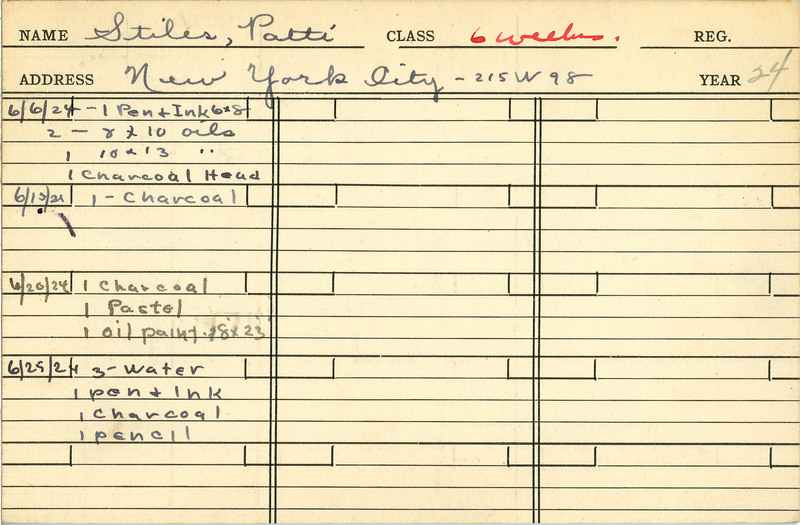 NAME Stiles, Patti CLASS 6 weeks. REG.
ADDRESS New York City - 215 W 98 YEAR 24
6/6/24 - 1 Pen + Ink 6x8
2 - 8 x 10 oils
1 10 x 13 "
1 Charcoal Head
1 - Charcoal
6/20/24 1 Charcoal
1 Pastel
1 oil paint. 18x23
3 - Water
1 pen + Ink
1 charcoal
1 pencil